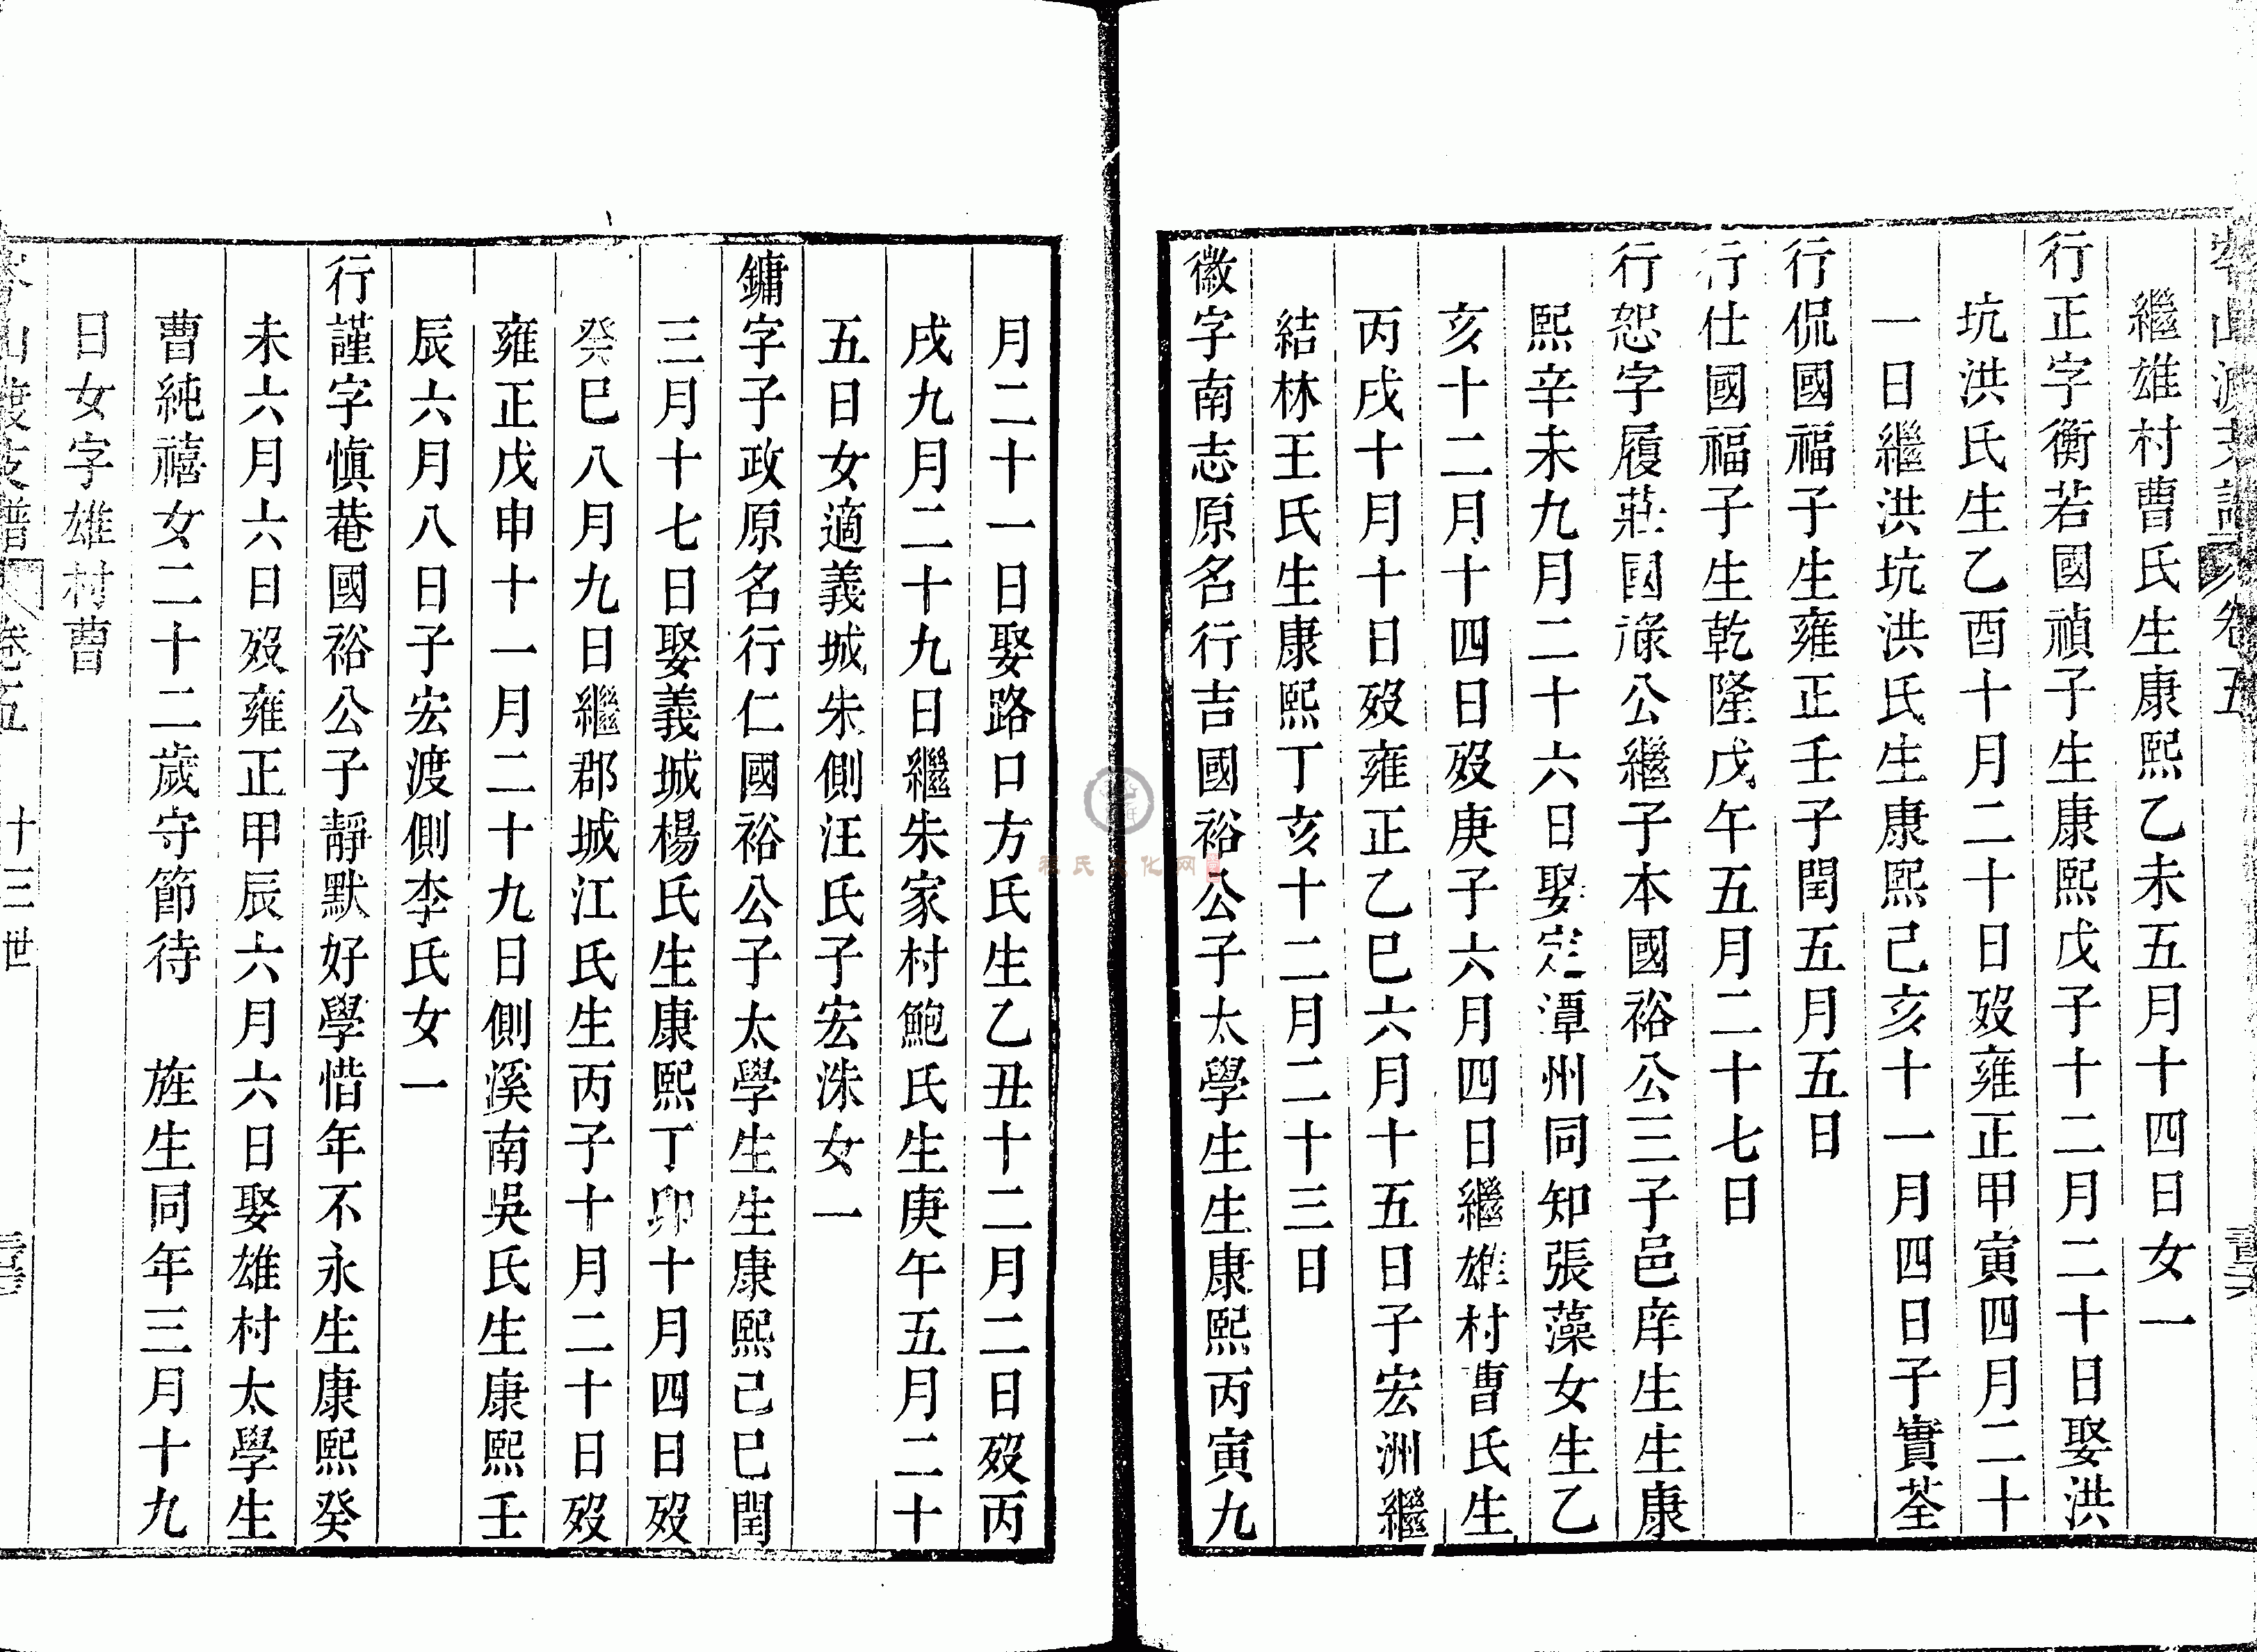 岑山渡支譜 卷五
繼雄村曹氏生康熙乙未五月十四日女一
行正字衡若國禎子生康熙戊子十二月二十日娶洪
坑洪氏生乙酉十月二十日歿雍正甲寅四月二十
一日繼洪坑洪氏生康熙己亥十一月四日子實荃
行侃國福子生雍正壬子閏五月五日
行仕國福子生乾隆戊午五月二十七日
行恕字履莊國祿公繼子本國裕公三子邑庠生生康
熙辛未九月二十六日娶定潭州同知張藻女生乙
亥十二月十四日歿庚子六月四日繼雄村曹氏生
丙戌十月十日歿雍正乙巳六月十五日子宏洲繼
結林王氏生康熙丁亥十二月二十三日
徽字南志原名行吉國裕公子太學生生康熙丙寅九
月二十一日娶路口方氏生乙丑十二月二日歿丙
戌九月二十九日繼朱家村鮑氏生庚午五月二十
五日女適義城朱側汪氏子宏洙女一
鏞字子政原名行仁國裕公子太學生生康熙己巳閏
三月十七日娶義城楊氏生康熙丁卯十月四日歿
癸巳八月九日繼郡城江氏生丙子十月二十日歿
雍正戊申十一月二十九日側溪南吳氏生康熙壬
辰六月八日子宏渡側李氏女一
行謹字愼菴國裕公子靜默好學惜年不永生康熙癸
未六月六日歿雍正甲辰六月六日娶雄村太學生
曹純禧女二十二歲守節待 旌生同年三月十九
日女字雄村曹
岑山渡支譜 卷五 十三世
程氏文化网